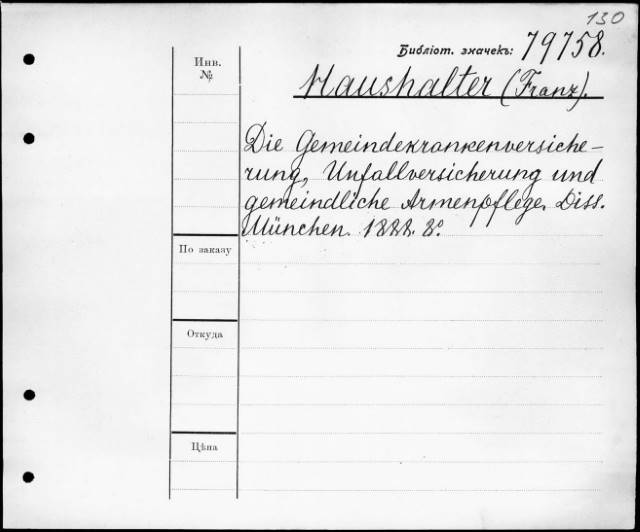 130
Библіот. значекъ: 79758.
Инв.
№
Haushalter (Franz).
Die Gemeindekrankenversiche-
rung, Unfallversicherung und
gemeindliche Armenpflege. Diss.
München. 1888. 8º.
По заказу
Откуда
Цѣна